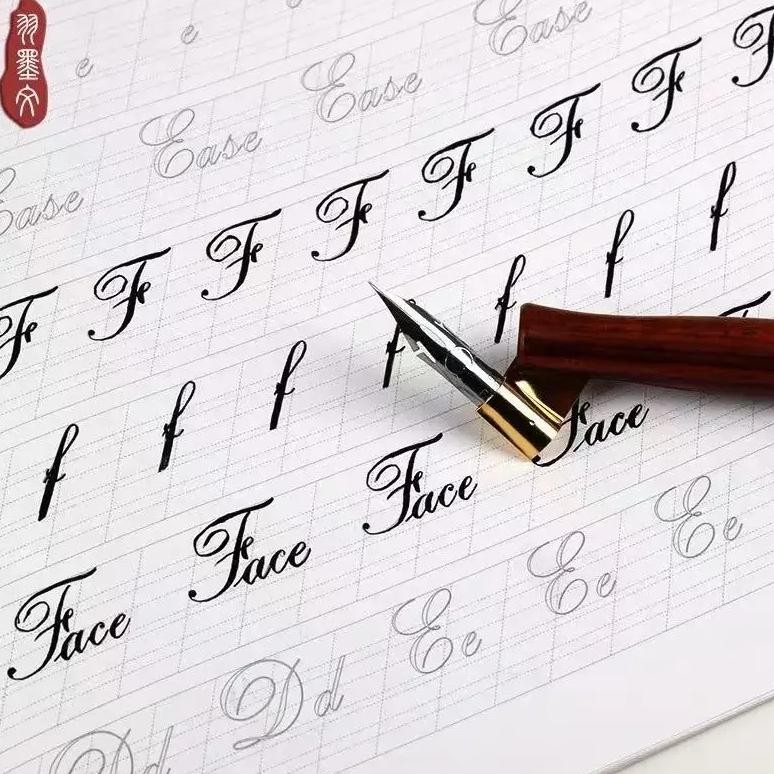 羽墨文
e e
Ease Ease Ease Ease
F F F F F F F F
f f f f f f f
Face Face Face Face
Dd Dd Ee Ee Ee